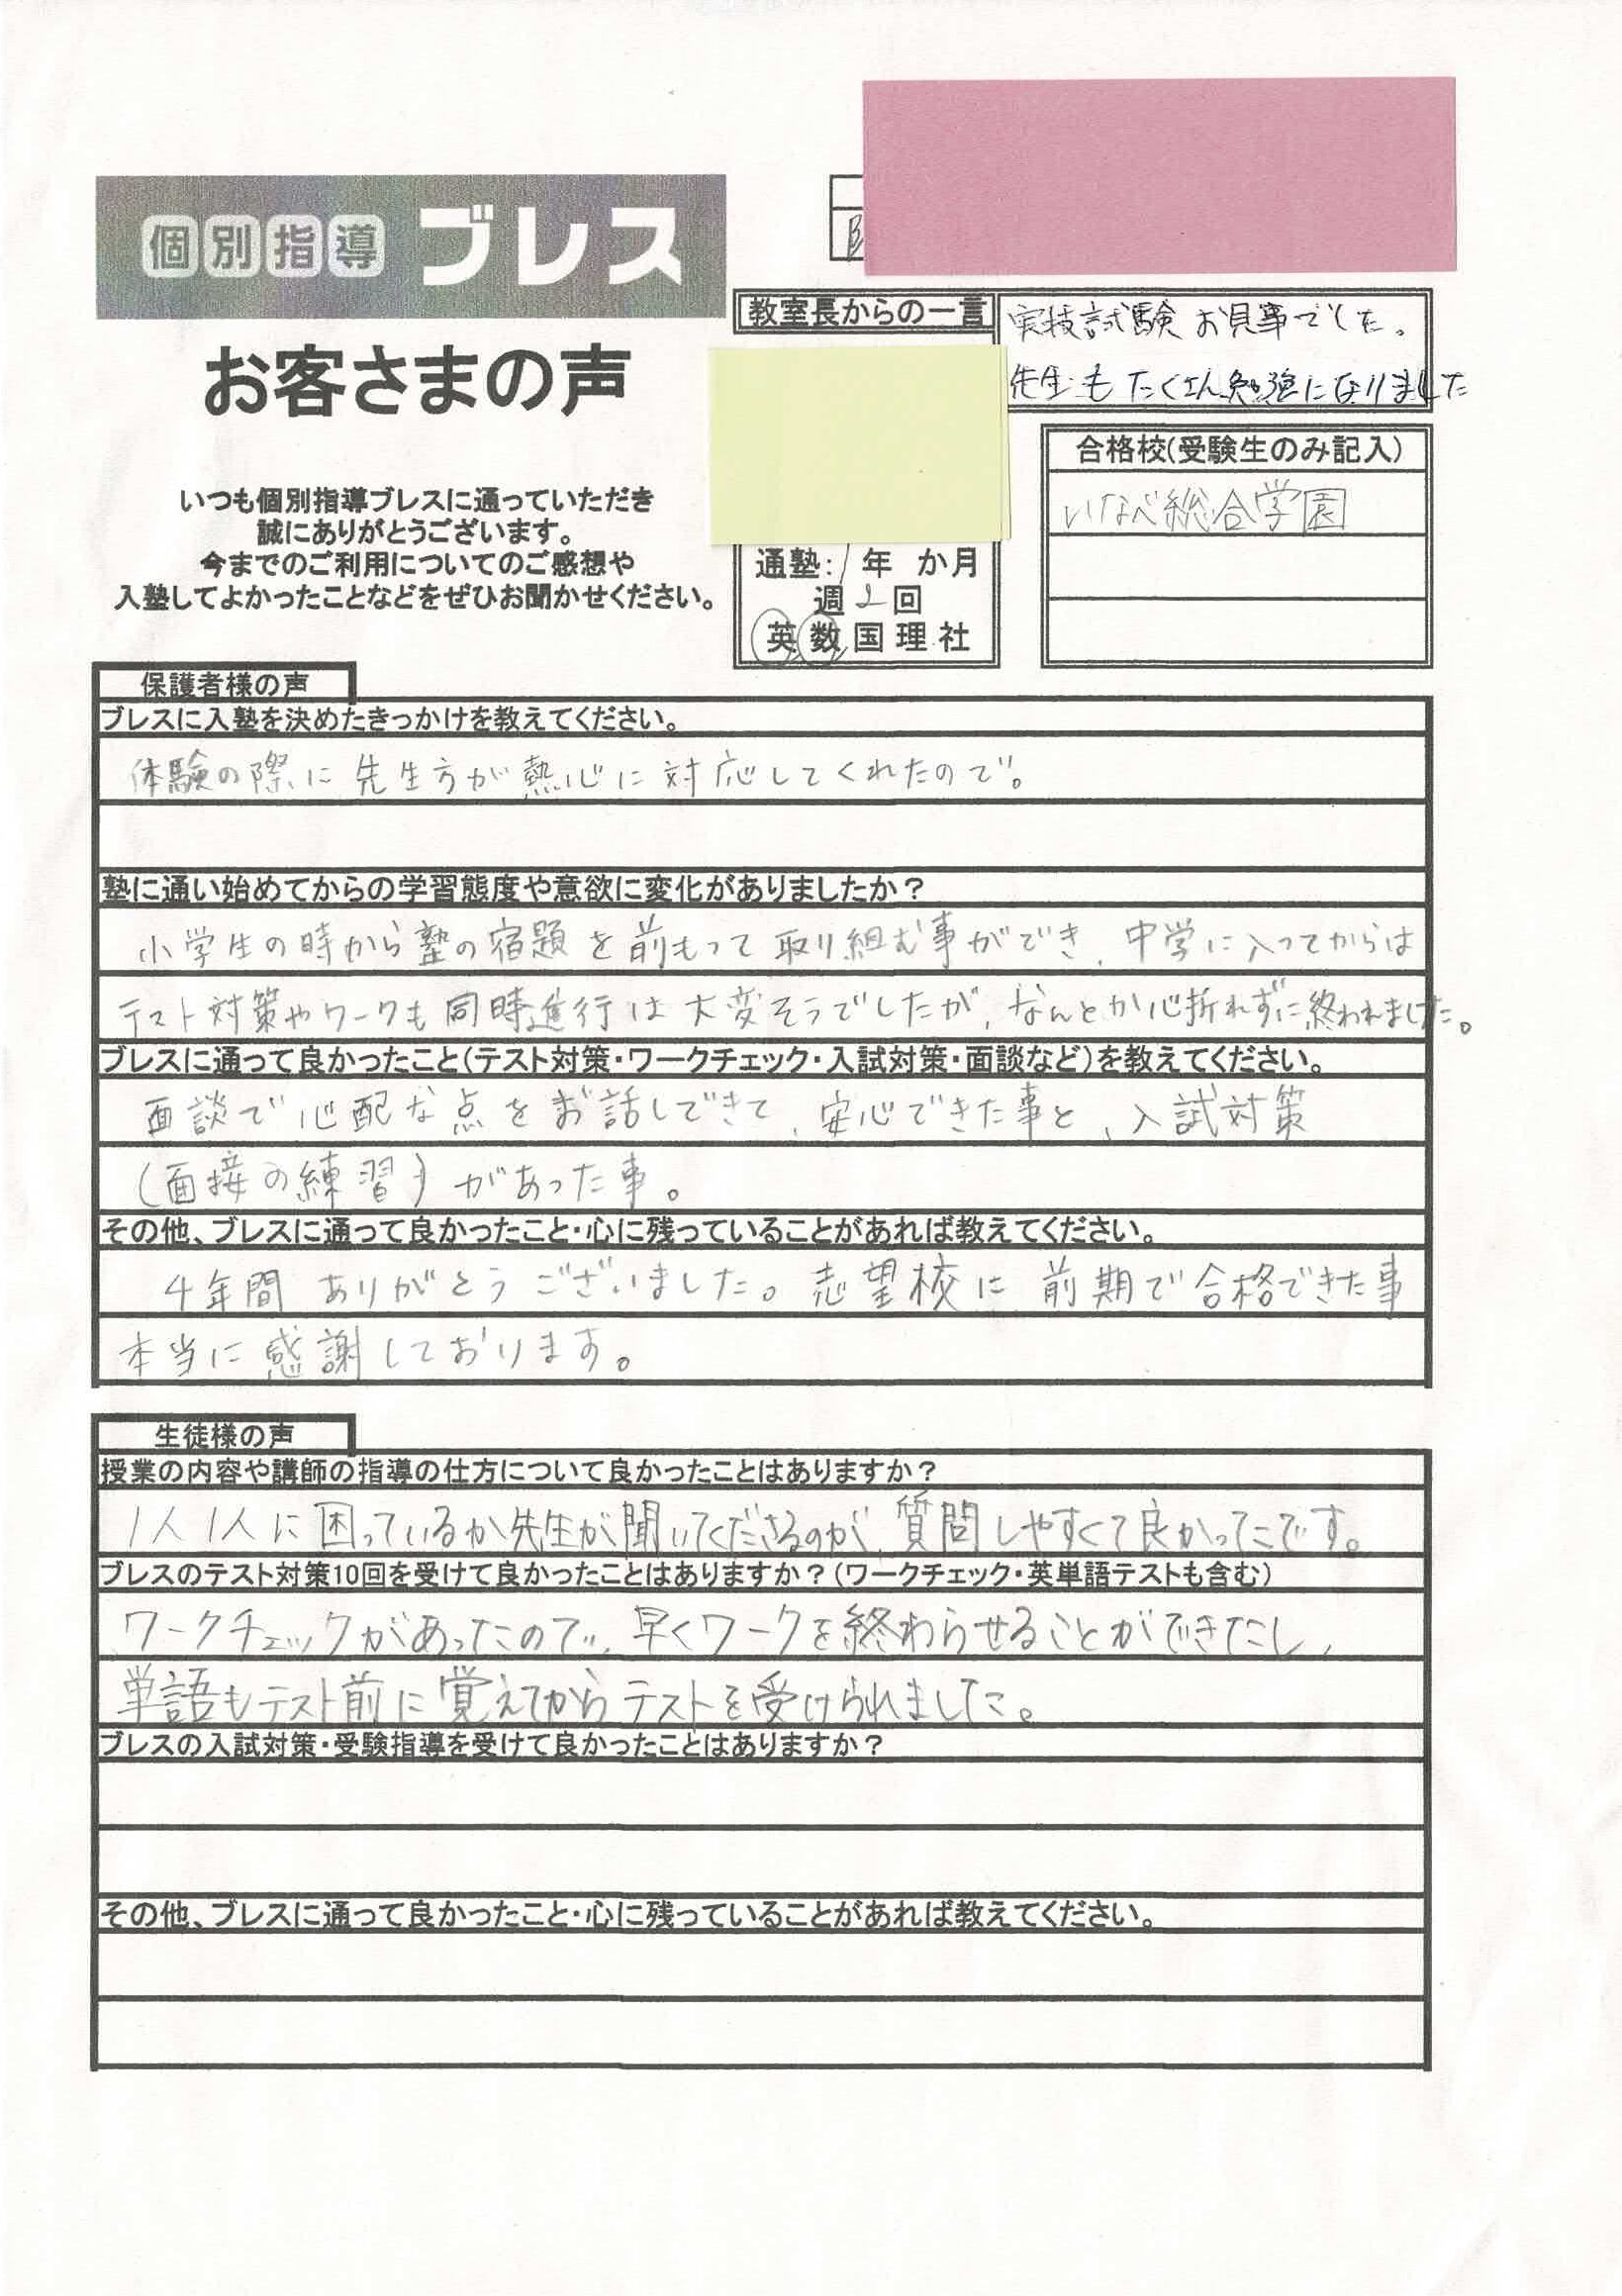 個別指導 ブレス
お客さまの声
いつも個別指導ブレスに通っていただき
誠にありがとうございます。
今までのご利用についてのご感想や
入塾してよかったことなどをぜひお聞かせください。
教室長からの一言
実技試験お見事でした。
先生もたくさん勉強になりました
合格校(受験生のみ記入)
いなべ総合学園
通塾: 年 か月
週2回
英数国理社
保護者様の声
ブレスに入塾を決めたきっかけを教えてください。
体験の際に先生方が熱心に対応してくれたので。
塾に通い始めてからの学習態度や意欲に変化がありましたか？
小学生の時から塾の宿題を前もって取り組む事ができ、中学に入ってからは
テスト対策やワークも同時進行は大変そうでしたが、なんとか心折れずに終われました。
ブレスに通って良かったこと(テスト対策・ワークチェック・入試対策・面談など)を教えてください。
面談で心配な点をお話しできて、安心できた事と、入試対策
(面接の練習)があった事。
その他、ブレスに通って良かったこと・心に残っていることがあれば教えてください。
4年間ありがとうございました。志望校に前期で合格できた事
本当に感謝しております。
生徒様の声
授業の内容や講師の指導の仕方について良かったことはありますか？
1人1人に困っているか先生が聞いてくださるのが、質問しやすくて良かったです。
ブレスのテスト対策10回を受けて良かったことはありますか？(ワークチェック・英単語テストも含む)
ワークチェックがあったので、早くワークを終わらせることができたし、
単語もテスト前に覚えてからテストを受けられました。
ブレスの入試対策・受験指導を受けて良かったことはありますか？
その他、ブレスに通って良かったこと・心に残っていることがあれば教えてください。